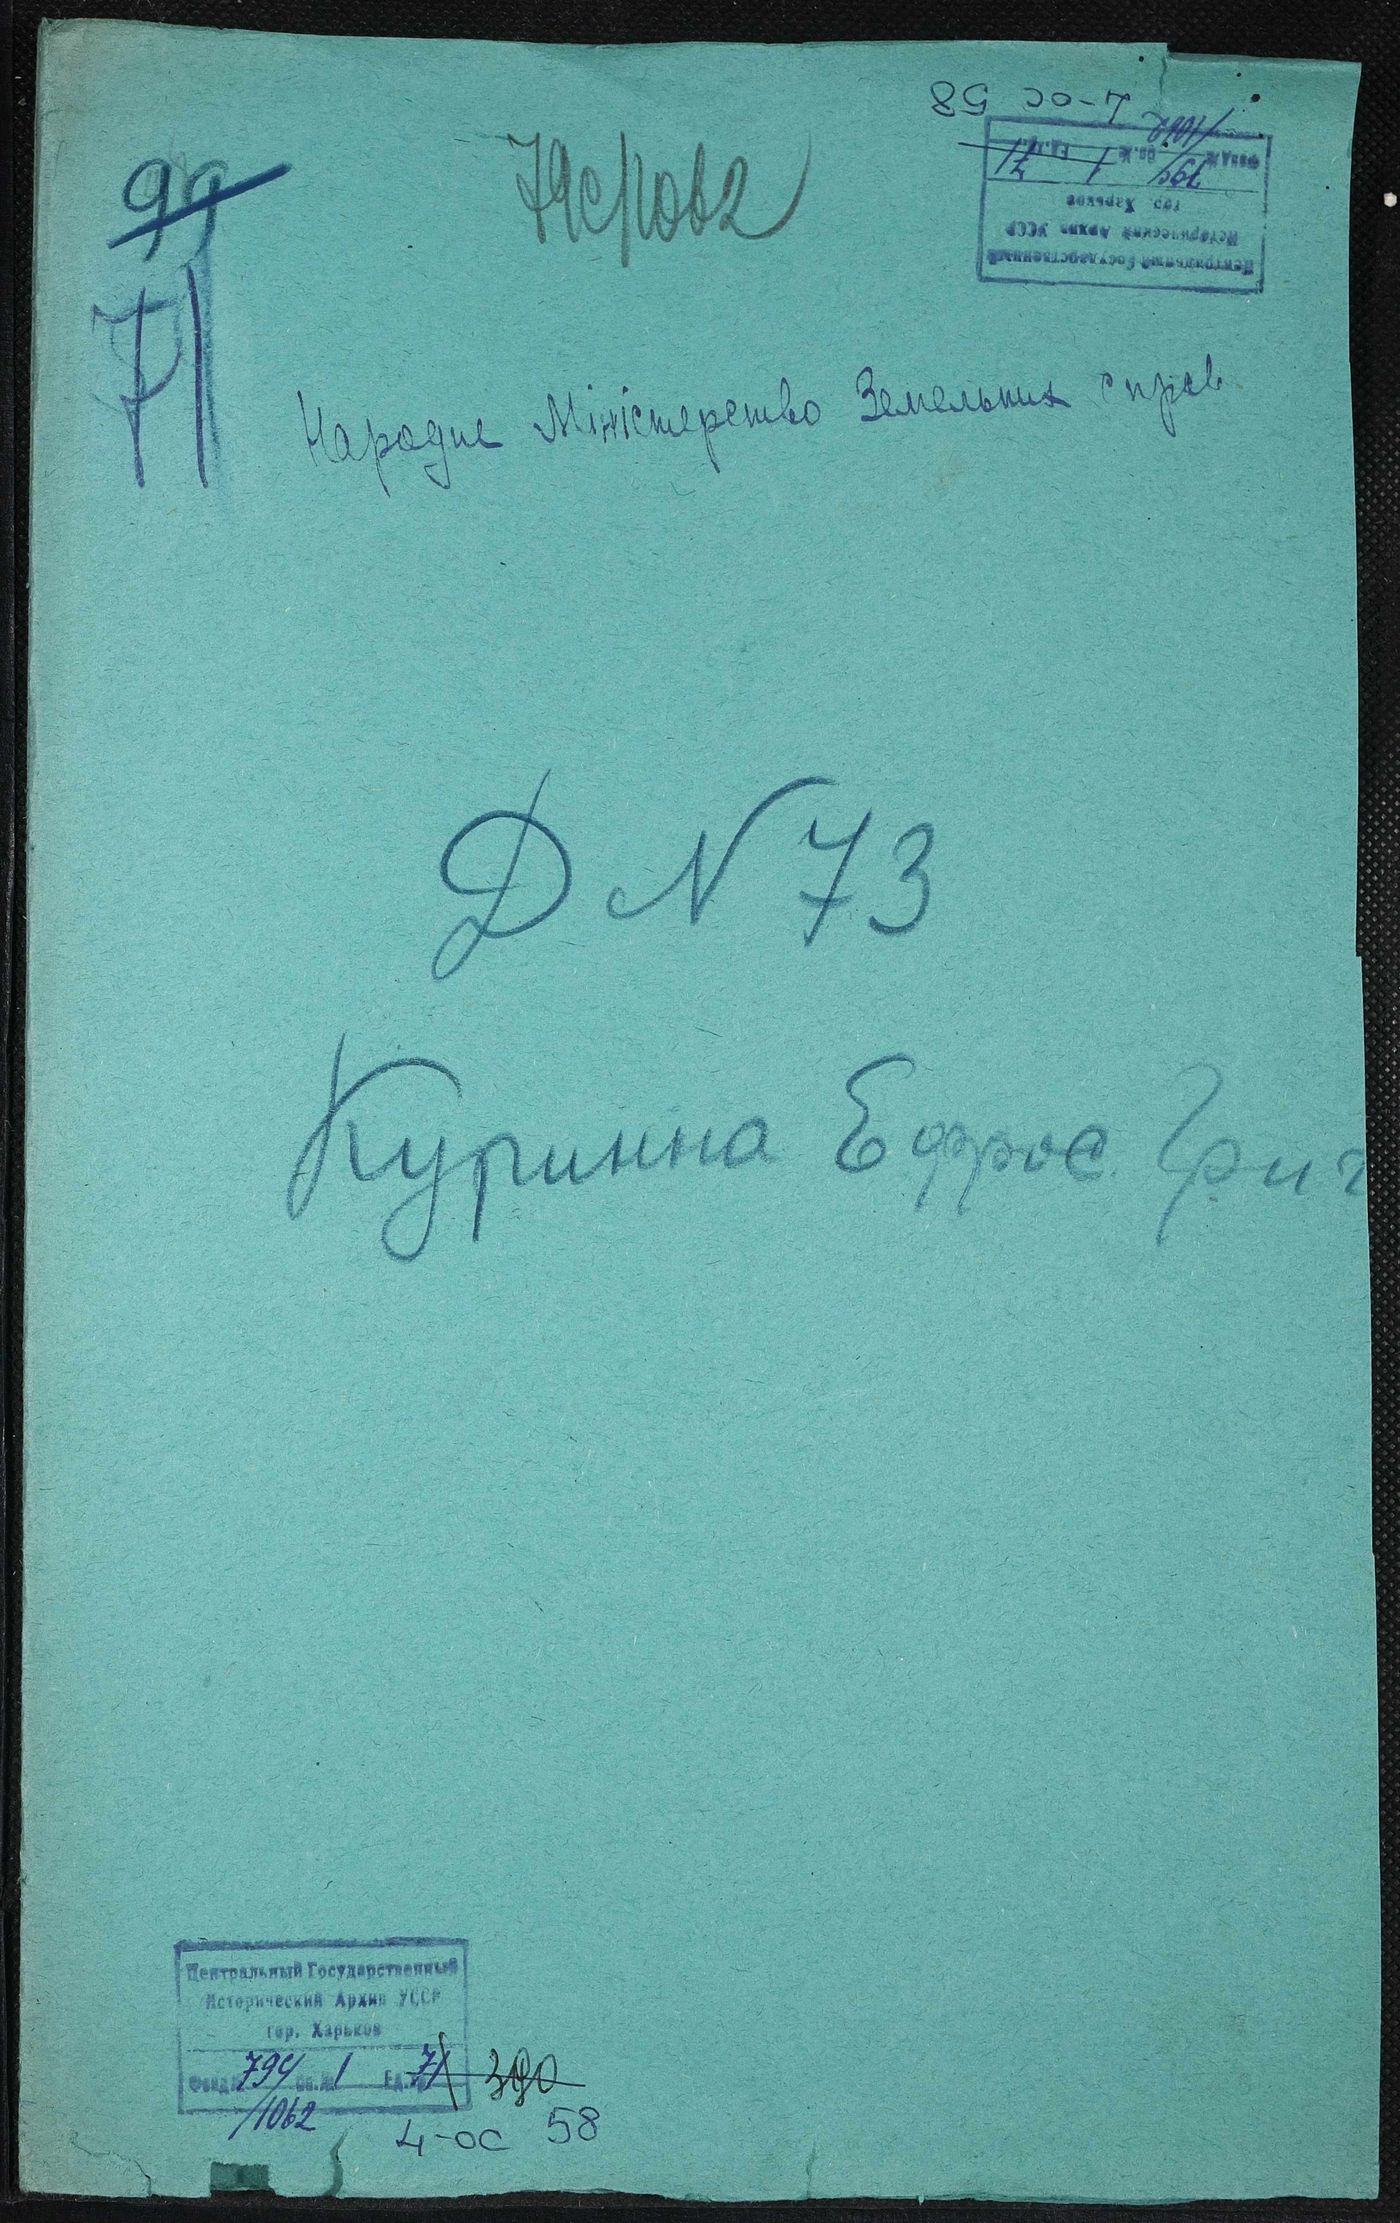 4-ос 58
Центральный Государственный
Исторический Архив УССР
гор. Харьков
Фонд № 794 Оп. № 1 Ед. хр. 71
/1062
99
71
Народне Міністерство Земельних справ
Д N 73
Куринна Ефрос. Григ
Центральный Государственный
Исторический Архив УССР
гор. Харьков
Фонд № 794 Оп. № 1 Ед. хр. 71 390
/1062
4-ос 58